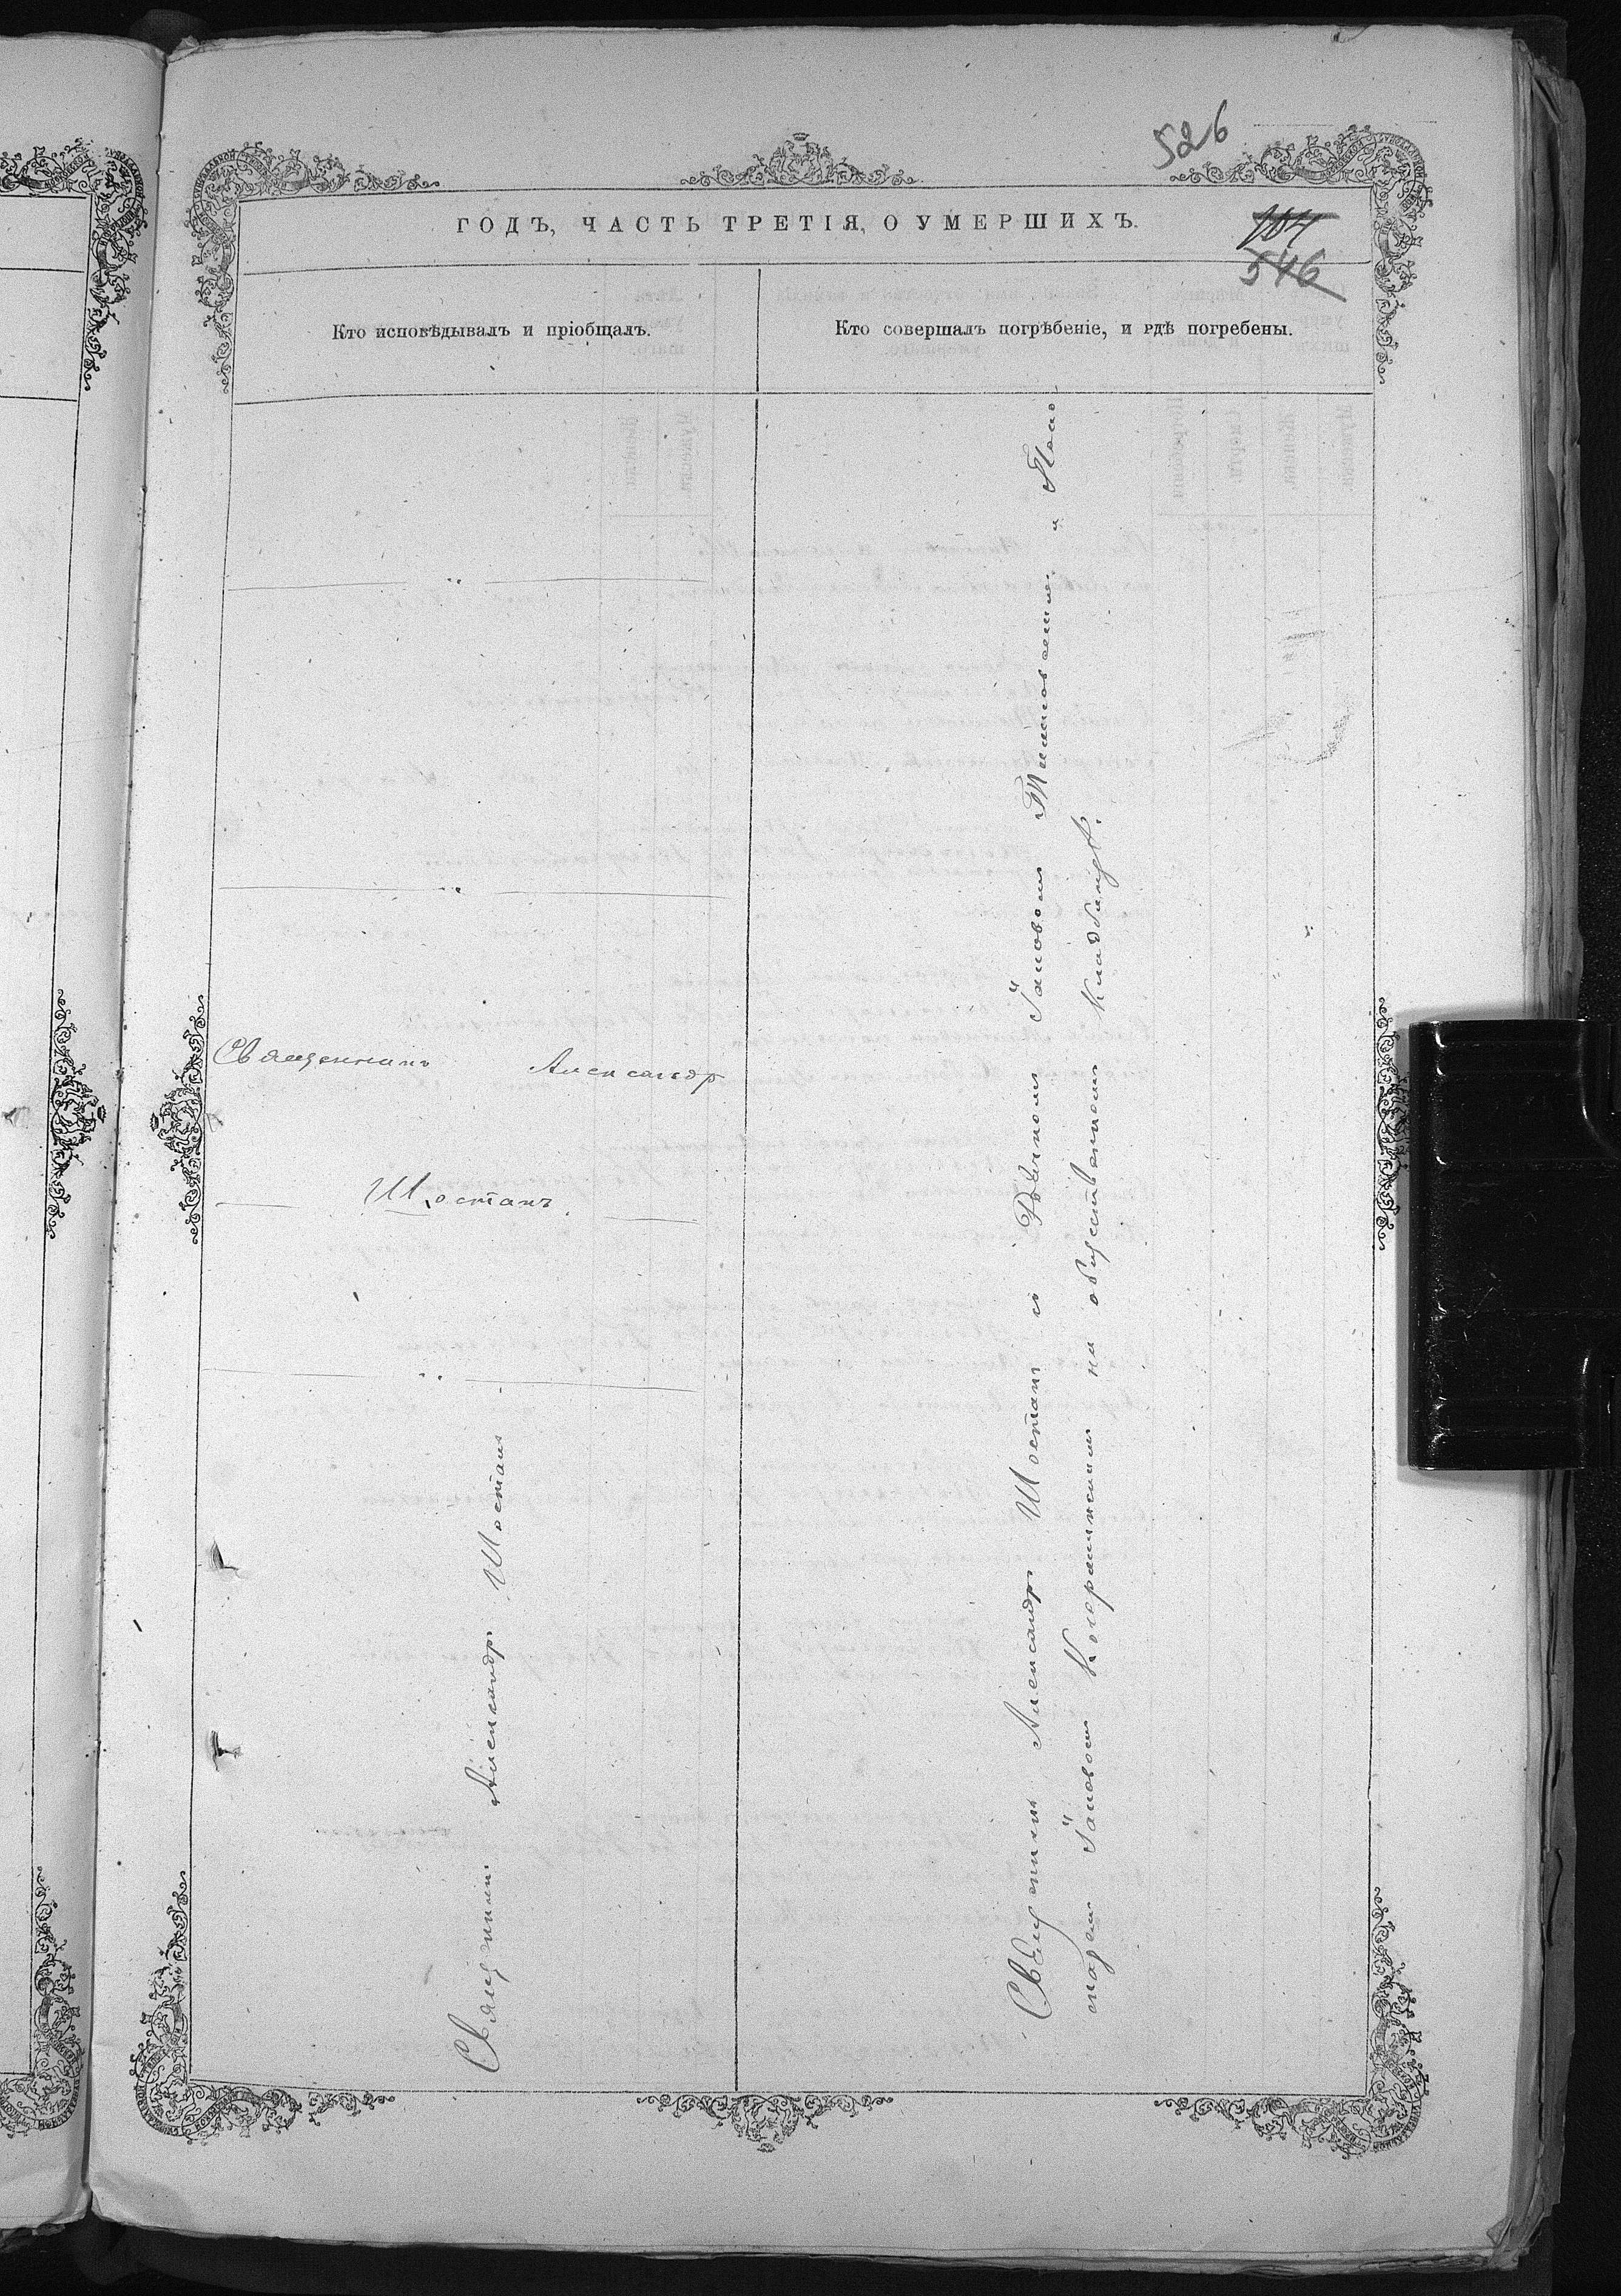 526
ГОДЪ, ЧАСТЬ ТРЕТІЯ, О УМЕРШИХЪ.
104
546
Кто исповѣдывалъ и пріобщалъ.
Кто совершалъ погрѣбеніе, и гдѣ погребены.
Священникъ Александръ
Шостакъ.
Священникъ Александръ Шостакъ
Священникъ Александръ Шостакъ съ Іаковомъ и Пса-
ломщ. Іаковомъ на общественномъ кладбищѣ.